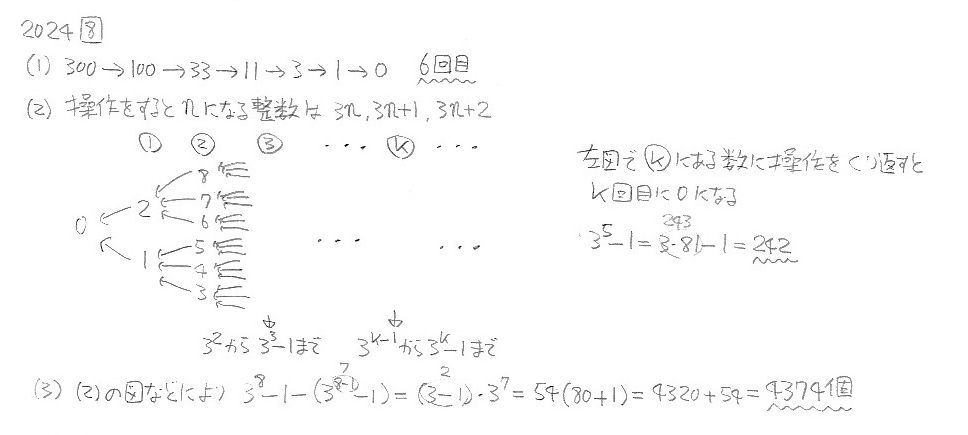 2024 8
(1) 300→100→33→11→3→1→0 6回目
(2) 操作をするとnになる整数は 3n, 3n+1, 3n+2
① ② ③ ··· ⓚ ···
0 2 1 8 7 6 5 4 3 ··· ···
3²から3³-1まで 3^{k-1}から3^k-1まで
左図でⓚにある数に操作をくり返すと
k回目に0になる
3⁵-1=3·81-1=242
243
(3) (2)の図などにより 3⁸-1-(3^{8-1}-1)=(3-1)·3⁷=54(80+1)=4320+54=4374個
7 2